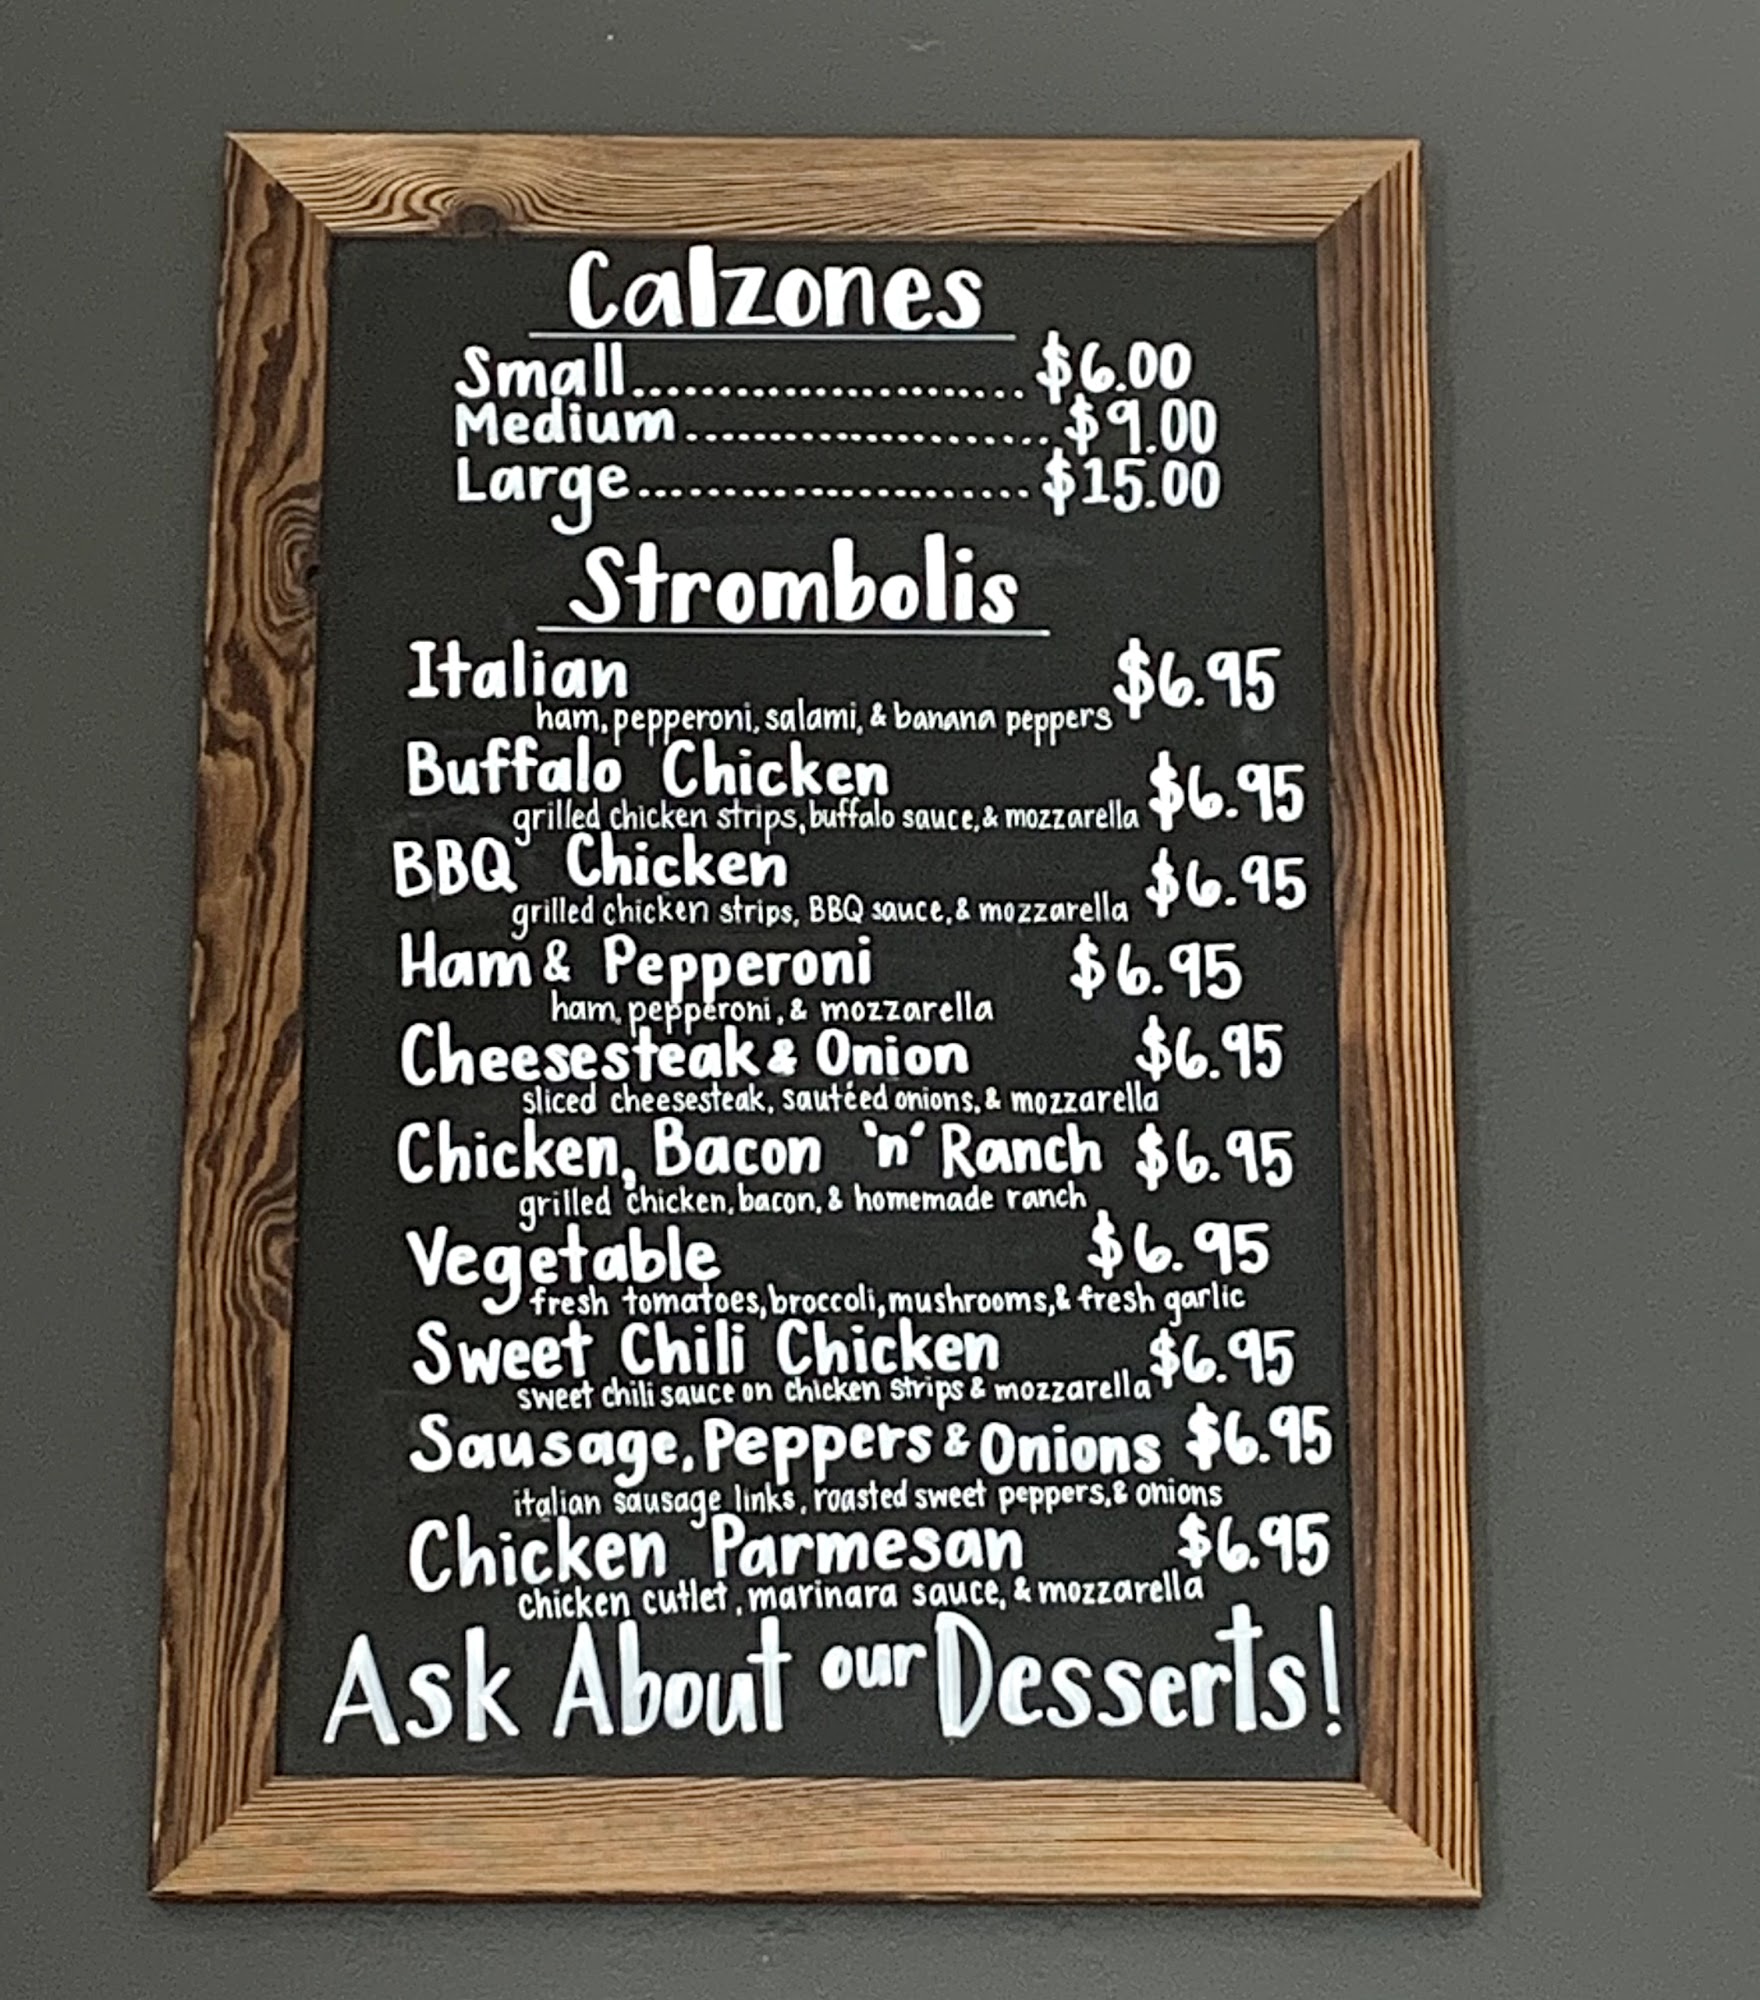 Calzones
Small........................ $6.00
Medium...................... $9.00
Large........................ $15.00
Strombolis
Italian $6.95
ham, pepperoni, salami, & banana peppers
Buffalo Chicken $6.95
grilled chicken strips, buffalo sauce, & mozzarella
BBQ Chicken $6.95
grilled chicken strips, BBQ sauce, & mozzarella
Ham & Pepperoni $6.95
ham, pepperoni, & mozzarella
Cheesesteak & Onion $6.95
sliced cheesesteak, sautéed onions, & mozzarella
Chicken, Bacon 'n' Ranch $6.95
grilled chicken, bacon, & homemade ranch
Vegetable $6.95
fresh tomatoes, broccoli, mushrooms, & fresh garlic
Sweet Chili Chicken $6.95
sweet chili sauce on chicken strips & mozzarella
Sausage, Peppers & Onions $6.95
italian sausage links, roasted sweet peppers, & onions
Chicken Parmesan $6.95
chicken cutlet, marinara sauce, & mozzarella
Ask About our Desserts!